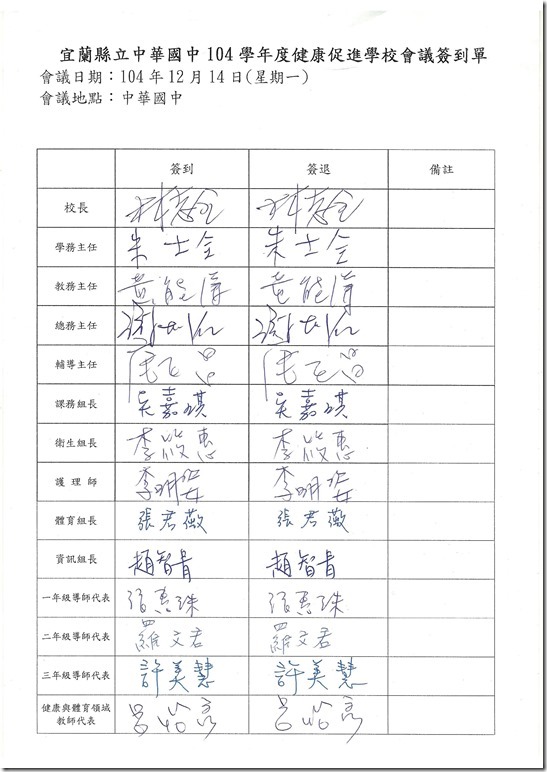 宜蘭縣立中華國中 104 學年度健康促進學校會議簽到單
會議日期：104 年 12 月 14 日(星期一)
會議地點：中華國中
簽到 簽退 備註
校長
學務主任 朱士全 朱士全
教務主任
總務主任
輔導主任
課務組長 吳嘉琪 吳嘉琪
衛生組長 李筱惠 李筱惠
護理師 李明 李明
體育組長 張君薇 張君薇
資訊組長 趙智青 趙智青
一年級導師代表
二年級導師代表 羅文君 羅文君
三年級導師代表 許美慧 許美慧
健康與體育領域
教師代表